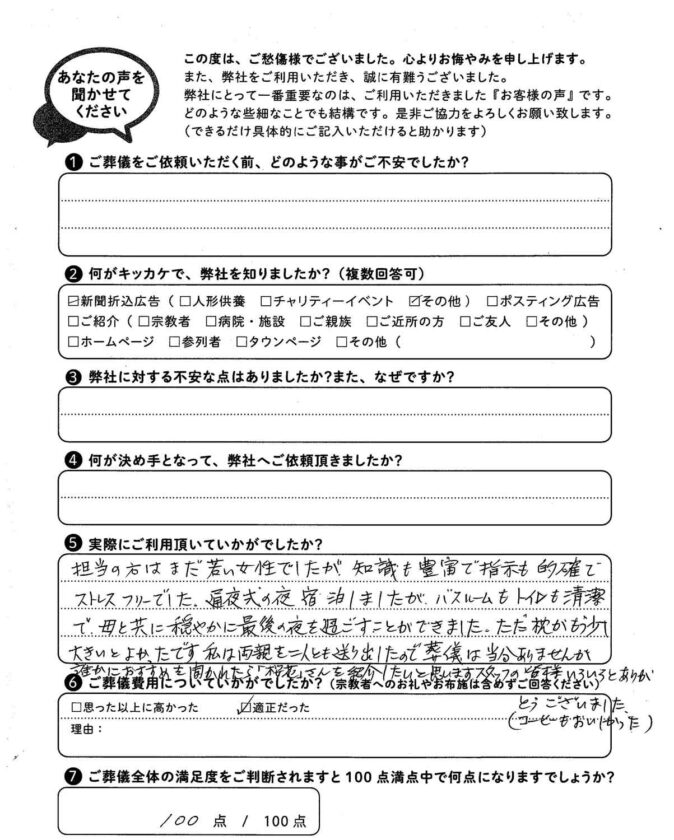 あなたの声を
聞かせて
ください
この度は、ご愁傷様でございました。心よりお悔やみを申し上げます。
また、弊社をご利用いただき、誠に有難うございました。
弊社にとって一番重要なのは、ご利用いただきました『お客様の声』です。
どのような些細なことでも結構です。是非ご協力をよろしくお願い致します。
(できるだけ具体的にご記入いただけると助かります)
❶ ご葬儀をご依頼いただく前、どのような事がご不安でしたか?
❷ 何がキッカケで、弊社を知りましたか?(複数回答可)
☑新聞折込広告 ( □人形供養 □チャリティーイベント ☑その他 ) □ポスティング広告
□ご紹介 ( □宗教者 □病院・施設 □ご親族 □ご近所の方 □ご友人 □その他 )
□ホームページ □参列者 □タウンページ □その他 ( )
❸ 弊社に対する不安な点はありましたか?また、なぜですか?
❹ 何が決め手となって、弊社へご依頼頂きましたか?
❺ 実際にご利用頂いていかがでしたか?
担当の方はまだ若い女性でしたが、知識も豊富で指示も的確で
ストレスフリーでした。通夜式の夜宿泊しましたが、バスルームもトイレも清潔
で、母と共に穏やかに最後の夜を過ごすことができました。ただ枕がもう少し
大きいとよかったです 私は両親を二人とも送り出したので葬儀は当分ありませんが
誰かにおすすめを聞かれたら「 」さんを紹介したいと思います スタッフの皆様いろいろとありが
とうございました
(コーヒーもおいしかった)
❻ ご葬儀費用についていかがでしたか?(宗教者へのお礼やお布施は含めずご回答ください)
□思った以上に高かった ☑適正だった
理由:
❼ ご葬儀全体の満足度をご判断されますと100点満点中で何点になりますでしょうか?
100 点 / 100点